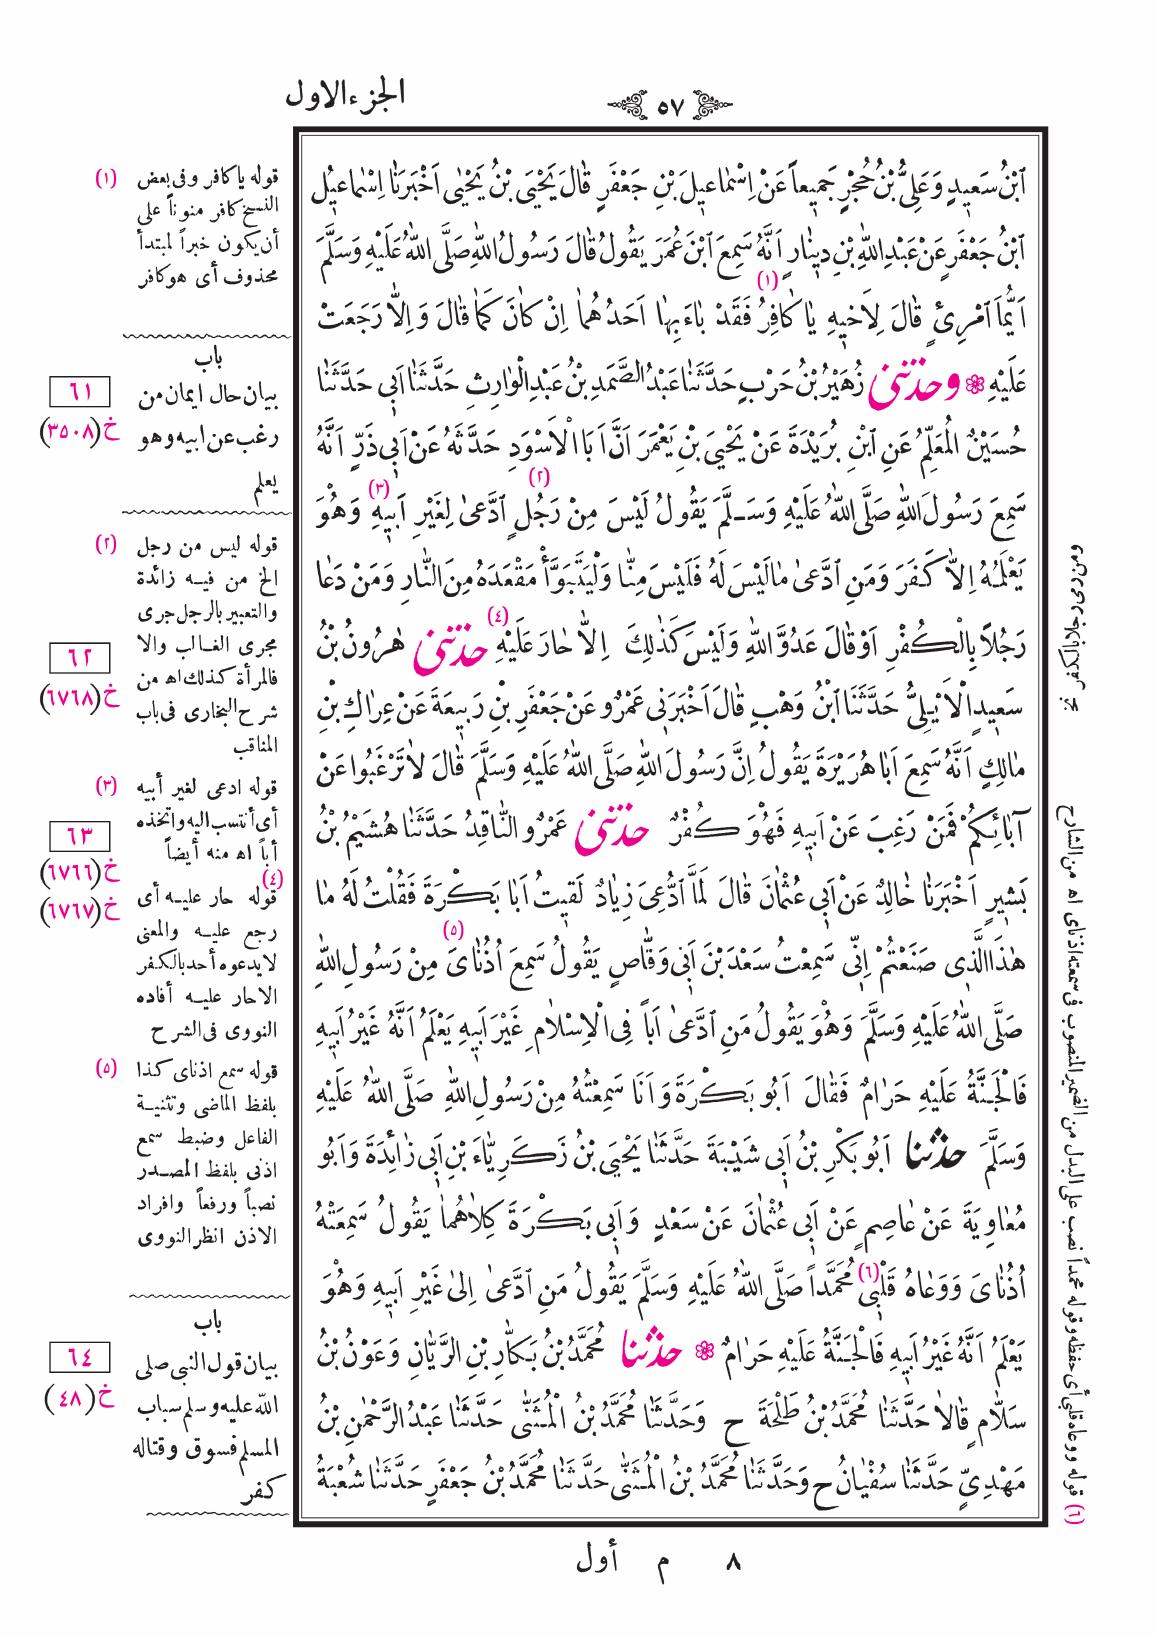 الجزء الاول
٥٧
ابْنُ سَعِيدٍ وَعَلِىُّ بْنُ حُجْرٍ جَمِيعاً عَنْ اِسْمَاعِيلَ بْنِ جَعْفَرٍ قَالَ يَحْيَى بْنُ يَحْيٰى اَخْبَرَنَا اِسْمَاعِيلُ
ابْنُ جَعْفَرٍ عَنْ عَبْدِ اللّٰهِ بْنِ دِينَارٍ اَنَّهُ سَمِعَ ابْنَ عُمَرَ يَقُولُ قَالَ رَسُولُ اللّٰهِ صَلَّى اللّٰهُ عَلَيْهِ وَسَلَّمَ
اَيُّمَا امْرِئٍ قَالَ لِاَخيهِ يَا كَافِرُ (١) فَقَدْ بَاءَ بِهَا اَحَدُهُمَا اِنْ كَانَ كَمَا قَالَ وَاِلَّا رَجَعَتْ
عَلَيْهِ ❁ وحدثنى زُهَيْرُ بْنُ حَرْبٍ حَدَّثَنَا عَبْدُ الصَّمَدِ بْنُ عَبْدِ الْوَارِثِ حَدَّثَنَا اَبِى حَدَّثَنَا
حُسَيْنٌ الْمُعَلِّمُ عَنِ ابْنِ بُرَيْدَةَ عَنْ يَحْيَى بْنِ يَعْمَرَ اَنَّ اَبَا الْاَسْوَدِ حَدَّثَهُ عَنْ اَبِى ذَرٍّ اَنَّهُ
سَمِعَ رَسُولَ اللّٰهِ صَلَّى اللّٰهُ عَلَيْهِ وَسَلَّمَ يَقُولُ لَيْسَ مِنْ رَجُلٍ (٢) ادَّعىٰ لِغَيْرِ اَبِيهِ (٣) وَهُوَ
يَعْلَمُهُ اِلَّا كَفَرَ وَمَنِ ادَّعىٰ مَا لَيْسَ لَهُ فَلَيْسَ مِنَّا وَلْيَتَبَوَّأْ مَقْعَدَهُ مِنَ النَّارِ وَمَنْ دَعَا
رَجُلاً بِالْكُفْرِ اَوْ قَالَ عَدُوَّ اللّٰهِ وَلَيْسَ كَذٰلِكَ اِلَّا حَارَ عَلَيْهِ (٤) حدثنى هٰرُونُ بْنُ
سَعِيدٍ الْاَيْلِىُّ حَدَّثَنَا ابْنُ وَهْبٍ قَالَ اَخْبَرَنِى عَمْرٌو عَنْ جَعْفَرِ بْنِ رَبِيعَةَ عَنْ عِرَاكِ بْنِ
مَالِكٍ اَنَّهُ سَمِعَ اَبَا هُرَيْرَةَ يَقُولُ اِنَّ رَسُولَ اللّٰهِ صَلَّى اللّٰهُ عَلَيْهِ وَسَلَّمَ قَالَ لَا تَرْغَبُوا عَنْ
آبَائِكُمْ فَمَنْ رَغِبَ عَنْ اَبِيهِ فَهُوَ كُفْرٌ حدثنى عَمْرٌو النَّاقِدُ حَدَّثَنَا هُشَيْمُ بْنُ
بَشِيرٍ اَخْبَرَنَا خَالِدٌ عَنْ اَبِى عُثْمَانَ قَالَ لَمَّا ادُّعِىَ زِيَادٌ لَقِيتُ اَبَا بَكْرَةَ فَقُلْتُ لَهُ مَا
هٰذَا الَّذِى صَنَعْتُمْ اِنِّى سَمِعْتُ سَعْدَ بْنَ اَبِى وَقَّاصٍ يَقُولُ سَمِعَ اُذُنَاىَ (٥) مِنْ رَسُولِ اللّٰهِ
صَلَّى اللّٰهُ عَلَيْهِ وَسَلَّمَ وَهُوَ يَقُولُ مَنِ ادَّعىٰ اَباً فِى الْاِسْلَامِ غَيْرَ اَبِيهِ يَعْلَمُ اَنَّهُ غَيْرُ اَبِيهِ
فَالْجَنَّةُ عَلَيْهِ حَرَامٌ فَقَالَ اَبُو بَكْرَةَ وَاَنَا سَمِعْتُهُ مِنْ رَسُولِ اللّٰهِ صَلَّى اللّٰهُ عَلَيْهِ
وَسَلَّمَ حدثنا اَبُو بَكْرِ بْنُ اَبِى شَيْبَةَ حَدَّثَنَا يَحْيَى بْنُ زَكَرِيَّاءَ بْنِ اَبِى زَائِدَةَ وَاَبُو
مُعَاوِيَةَ عَنْ عَاصِمٍ عَنْ اَبِى عُثْمَانَ عَنْ سَعْدٍ وَاَبِى بَكْرَةَ كِلَاهُمَا يَقُولُ سَمِعَتْهُ
اُذُنَاىَ وَوَعَاهُ قَلْبِى (٦) مُحَمَّداً صَلَّى اللّٰهُ عَلَيْهِ وَسَلَّمَ يَقُولُ مَنِ ادَّعىٰ اِلىٰ غَيْرِ اَبِيهِ وَهُوَ
يَعْلَمُ اَنَّهُ غَيْرُ اَبِيهِ فَالْجَنَّةُ عَلَيْهِ حَرَامٌ ❁ حدثنا مُحَمَّدُ بْنُ بَكَّارِ بْنِ الرَّيَّانِ وَعَوْنُ بْنُ
سَلَّامٍ قَالَا حَدَّثَنَا مُحَمَّدُ بْنُ طَلْحَةَ ح وَحَدَّثَنَا مُحَمَّدُ بْنُ الْمُثَنّٰى حَدَّثَنَا عَبْدُ الرَّحْمٰنِ بْنُ
مَهْدِىٍّ حَدَّثَنَا سُفْيَانُ ح وَحَدَّثَنَا مُحَمَّدُ بْنُ الْمُثَنّٰى حَدَّثَنَا مُحَمَّدُ بْنُ جَعْفَرٍ حَدَّثَنَا شُعْبَةُ
٨ م أول
(١) قوله يا كافر وفى بعض
النسخ كافر منوناً على
أن يكون خبراً لمبتدأ
محذوف أى هو كافر
باب
٦١ بيان حال ايمان من
خ (٣٥٠٨) رغب عن ابيه وهو
يعلم
(٢) قوله ليس من رجل
الخ من فيه زائدة
والتعبير بالرجل جرى
مجرى الغالب والا
٦٢
فالمرأة كذلك اه من
خ (٦٧٦٨) شرح البخارى فى باب
المناقب
(٣) قوله ادعى لغير أبيه
أى أنتسب اليه واتخذه
٦٣ أباً اه منه أيضاً
خ (٦٧٦٦)
(٤) قوله حار عليه أى
خ (٦٧٦٧)
رجع عليه والمعنى
لا يدعوه أحد بالكفر
الا حار عليه أفاده
النووى فى الشرح
(٥) قوله سمع اذناى كذا
بلفظ الماضى وتثنية
الفاعل وضبط سمع
اذنى بلفظ المصدر
نصباً ورفعاً وافراد
الاذن انظر النووى
باب
٦٤ بيان قول النبى صلى
خ (٤٨) الله عليه وسلم سباب
المسلم فسوق وقتاله
كفر
(٦) قوله ووعاه قلبى أى حفظه وقوله محمداً نصب على البدل من الضمير المنصوب فى سمعته اذناى اه من الشارح